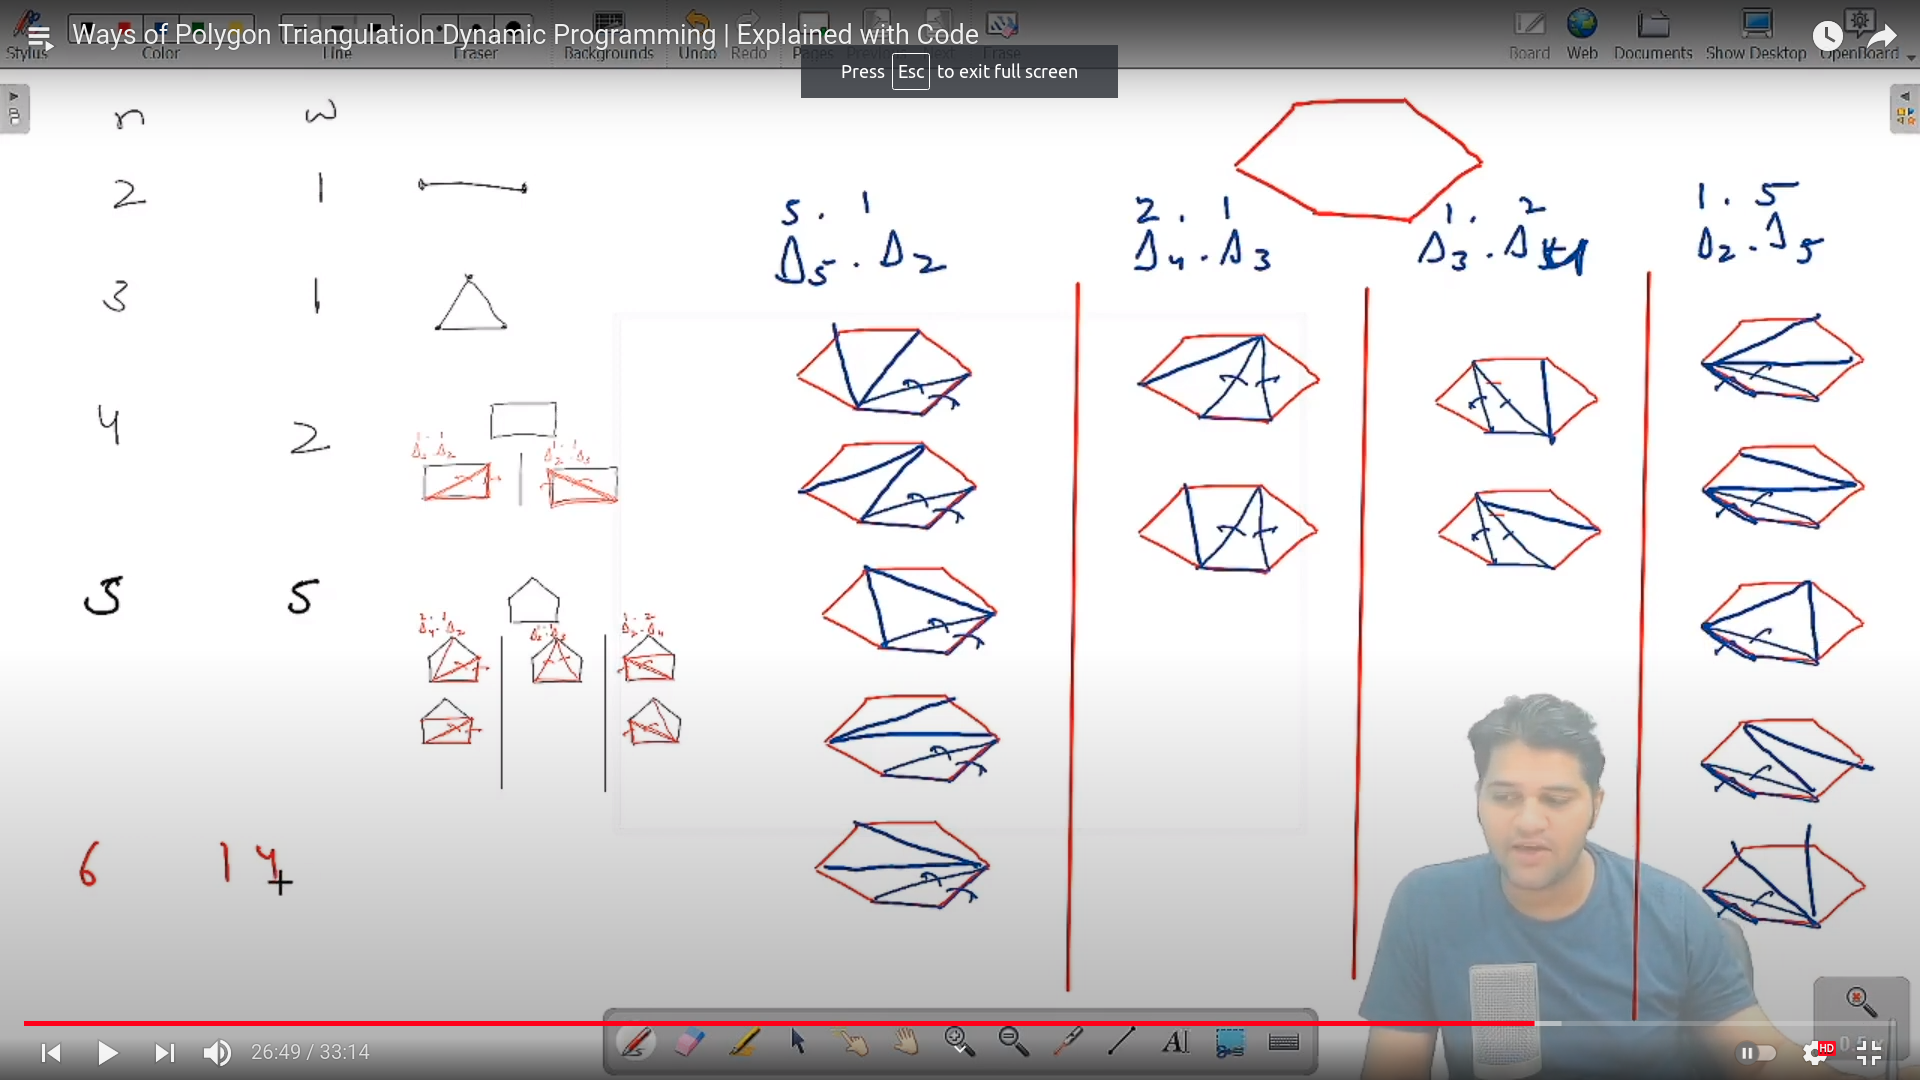 Ways of Polygon Triangulation Dynamic Programming | Explained with Code
Stylus Color Line Eraser Backgrounds Undo Redo Pages Previous Next Erase Board Web Documents Show Desktop OpenBoard
Press Esc to exit full screen
n w
2 1
3 1
4 2
5 5
6 14
5 . 1
Δ5 . Δ2
2 . 1
Δ4 . Δ3
1 . 2
Δ3 . Δ4
1 . 5
Δ2 . Δ5
26:49 / 33:14
HD